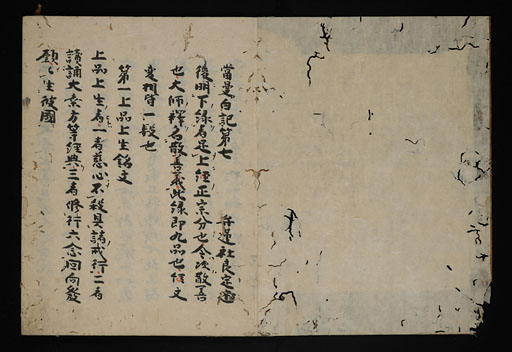 當曼白記第七
弁蓮社良定
後明下縁者是上經正宗分也令次散善
也大師釋名散善義此縁即九品也 文
變相守一段也
第一上品上生銘文
上品上生者一者慈心不殺具諸戒行二者
讀誦大乘方等經典三者修行六念迴向發
願生彼國